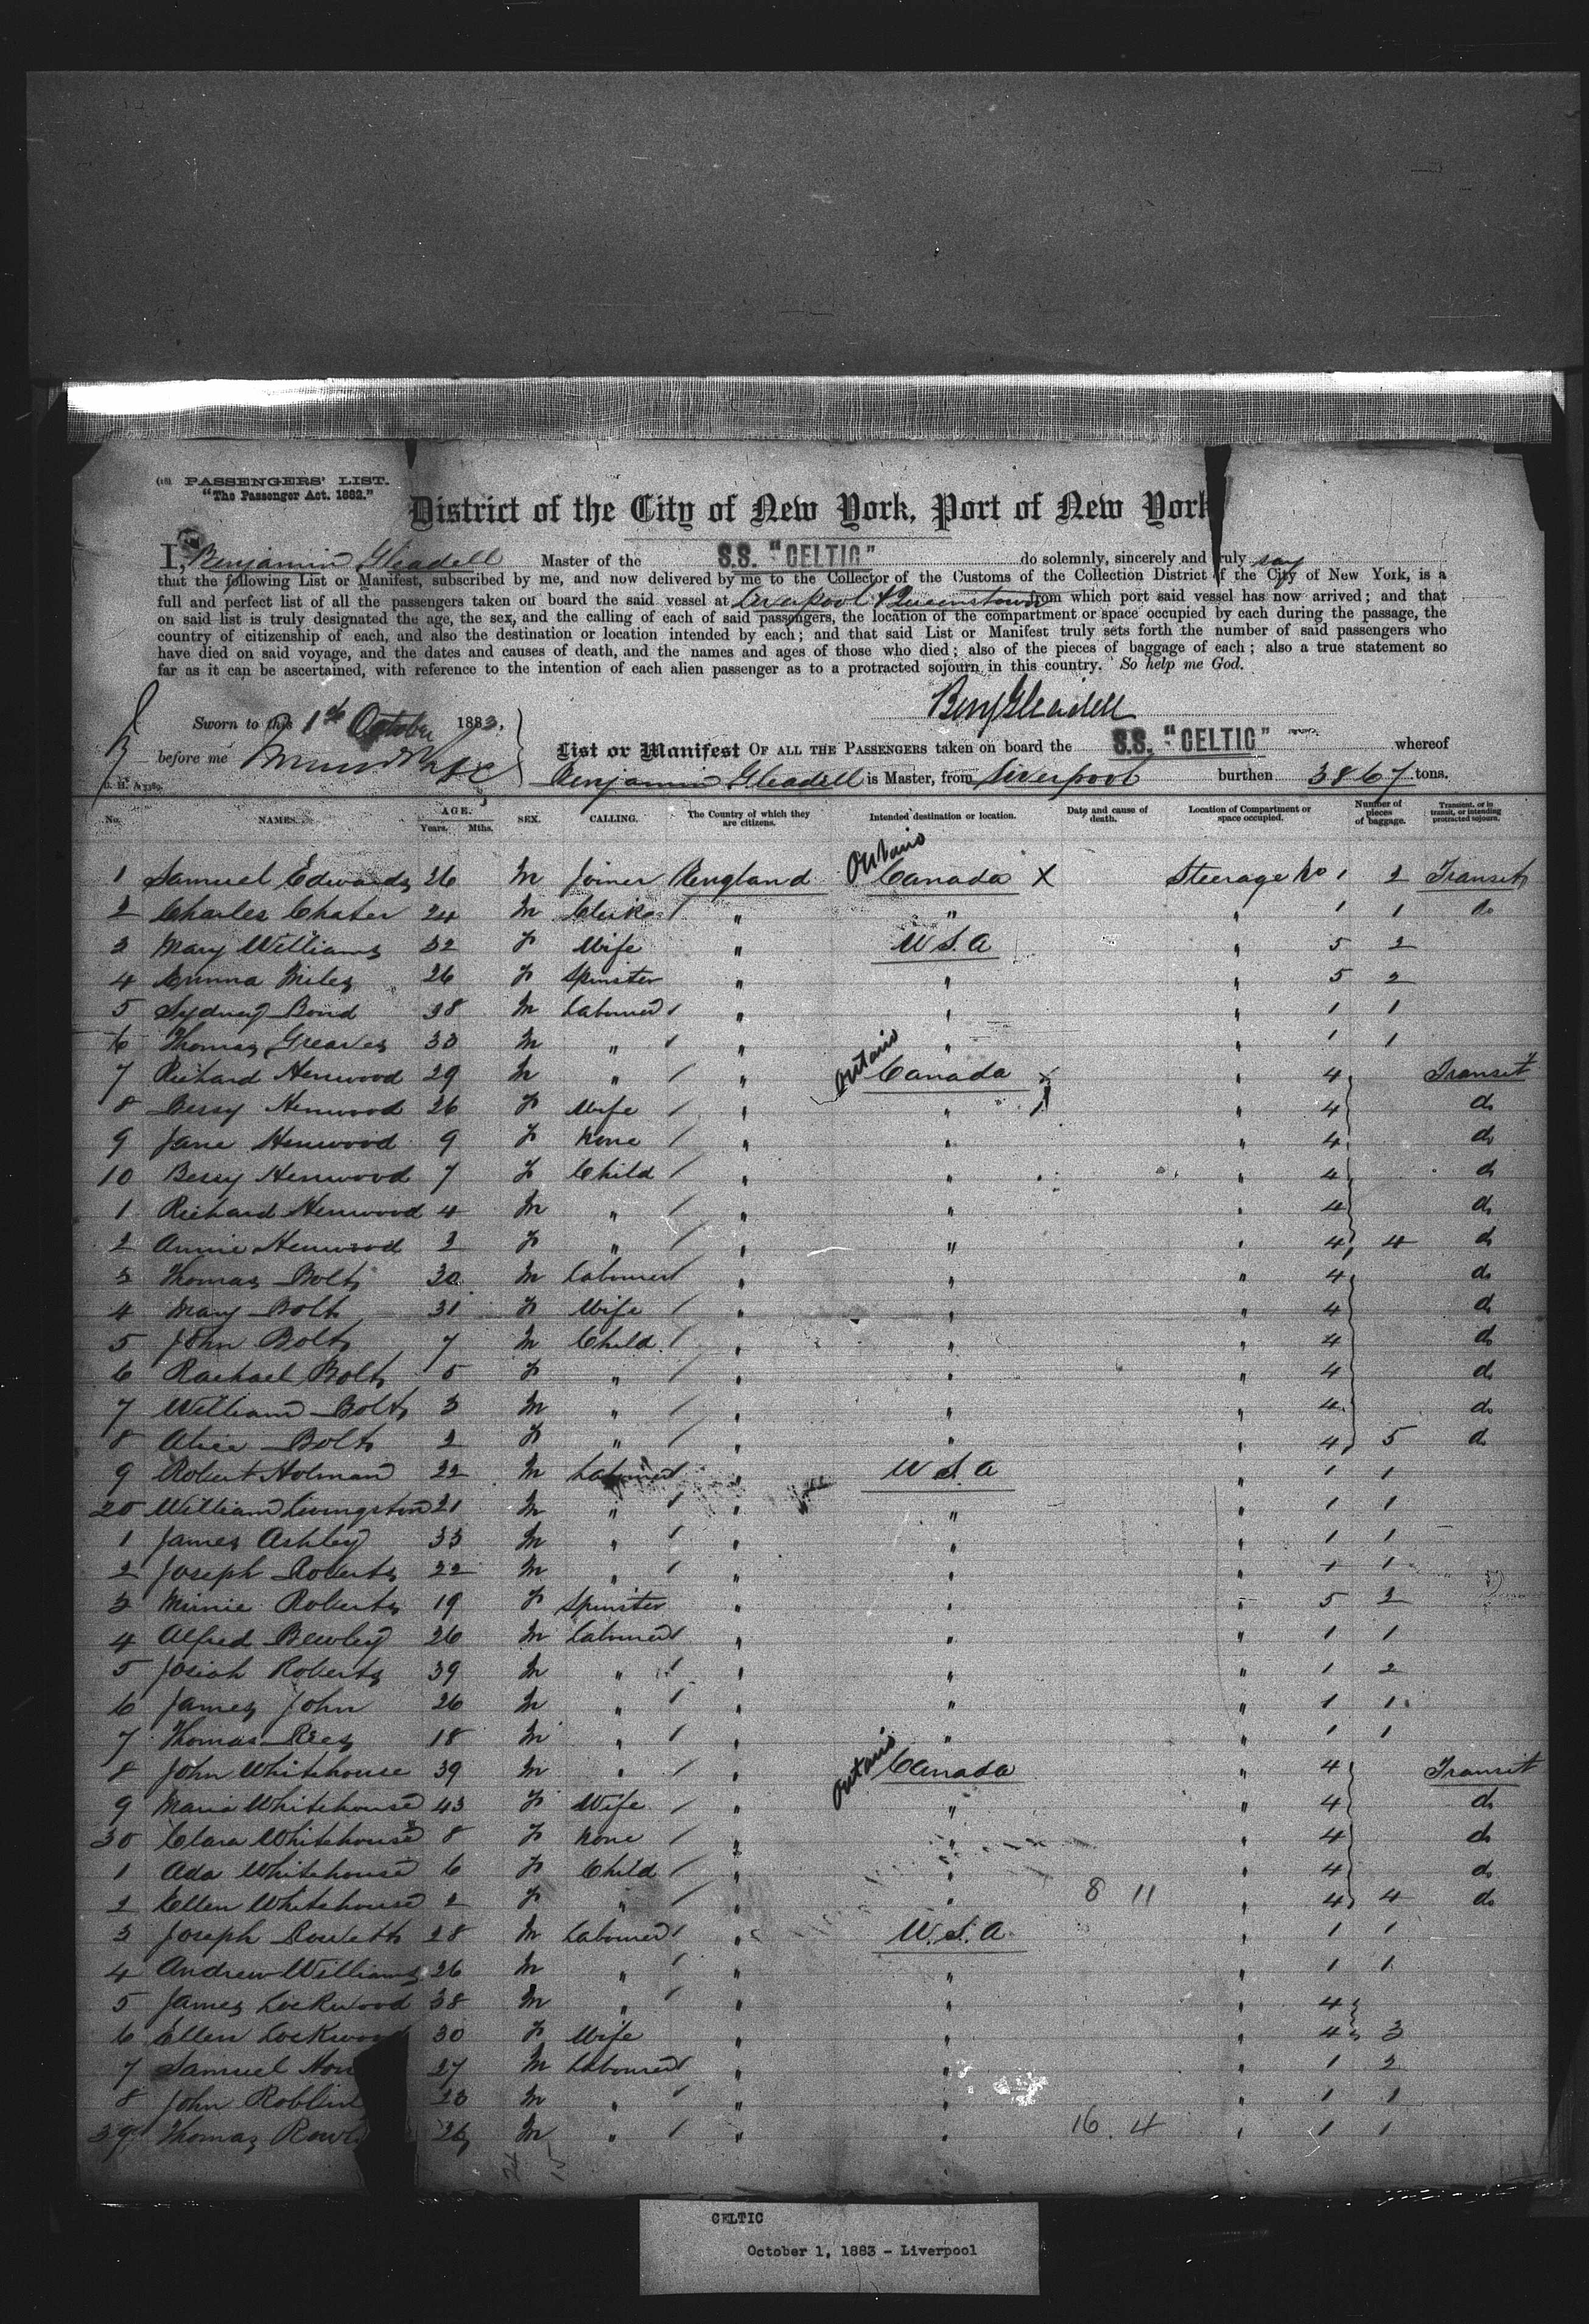 PASSENGERS' LIST.
"The Passenger Act. 1882."
District of the City of New York, Port of New York
I, Benjamin Gleadell Master of the S.S. "CELTIC" do solemnly, sincerely and truly say
that the following List or Manifest, subscribed by me, and now delivered by me to the Collector of the Customs of the Collection District of the City of New York, is a
full and perfect list of all the passengers taken on board the said vessel at Liverpool & Queenstown from which port said vessel has now arrived; and that
on said list is truly designated the age, the sex, and the calling of each of said passengers, the location of the compartment or space occupied by each during the passage, the
country of citizenship of each, and also the destination or location intended by each; and that said List or Manifest truly sets forth the number of said passengers who
have died on said voyage, and the dates and causes of death, and the names and ages of those who died; also of the pieces of baggage of each; also a true statement so
far as it can be ascertained, with reference to the intention of each alien passenger as to a protracted sojourn in this country. So help me God.
Benj Gleadell
Sworn to this 1st October 1883.
before me
List or Manifest OF ALL THE PASSENGERS taken on board the S.S. "CELTIC" whereof
Benjamin Gleadell is Master, from Liverpool burthen 3867 tons.
No. NAMES. AGE. Years. Mths. SEX. CALLING. The Country of which they are citizens. Intended destination or location. Date and cause of death. Location of Compartment or space occupied. Number of pieces of baggage. Transient, or in transit, or intending protracted sojourn.
1 Samuel Edwards 26 M Joiner England Ontario Canada X Steerage No 1 2 Transit
2 Charles Chater 24 M Clerk / " " " 1 1 do
3 Mary Williams 32 F Wife " U.S.A " 5 2
4 Emma Miles 26 F Spinster " " " 5 2
5 Sydney Bond 38 M Labourer / " " " 1 1
6 Thomas Greaves 30 M " / " " " 1 1
7 Richard Henwood 29 M " / " Ontario Canada X " 4 Transit
8 Bessy Henwood 26 F Wife / " " " 4 do
9 Jane Henwood 9 F None / " " " 4 do
10 Bessy Henwood 7 F Child / " " " 4 do
1 Richard Henwood 4 M " / " " " 4 do
2 Annie Henwood 2 F " / " " " 4 4 do
3 Thomas Bolt 30 M Labourer / " " " 4 do
4 Mary Bolt 31 F Wife / " " " 4 do
5 John Bolt 7 M Child / " " " 4 do
6 Rachael Bolt 5 F " / " " " 4 do
7 William Bolt 3 M " / " " " 4 do
8 Alice Bolt 2 F " / " " " 4 5 do
9 Robert Holman 22 M Labourer " U.S.A " 1 1
20 William Livingston 21 M " / " " " 1 1
1 James Ashley 33 M " / " " " 1 1
2 Joseph Roberts 22 M " / " " " 1 1
3 Minnie Roberts 19 F Spinster " " " 5 2
4 Alfred Bewley 26 M Labourer / " " " 1 1
5 Josiah Roberts 39 M " / " " " 1 2
6 James John 26 M " / " " " 1 1
7 Thomas Rees 18 M " / " " " 1 1
8 John Whitehouse 39 M " / " Ontario Canada " 4 Transit
9 Maria Whitehouse 43 F Wife / " " " 4 do
30 Clara Whitehouse 8 F None / " " " 4 do
1 Ada Whitehouse 6 F Child / " " " 4 do
2 Ellen Whitehouse 2 F " / " " 8 11 " 4 4 do
3 Joseph 28 M Labourer / " U.S.A " 1 1
4 Andrew Williams 26 M " / " " " 1 1
5 James Lockwood 38 M " / " " " 4
6 Ellen Lockwood 30 F Wife " " " 4 3
7 Samuel 27 M Labourer / " " " 1 2
8 John Roblin 23 M " / " " " 1 1
39 Thomas 26 M " / " " 16 4 " 1 1
CELTIC
October 1, 1883 - Liverpool